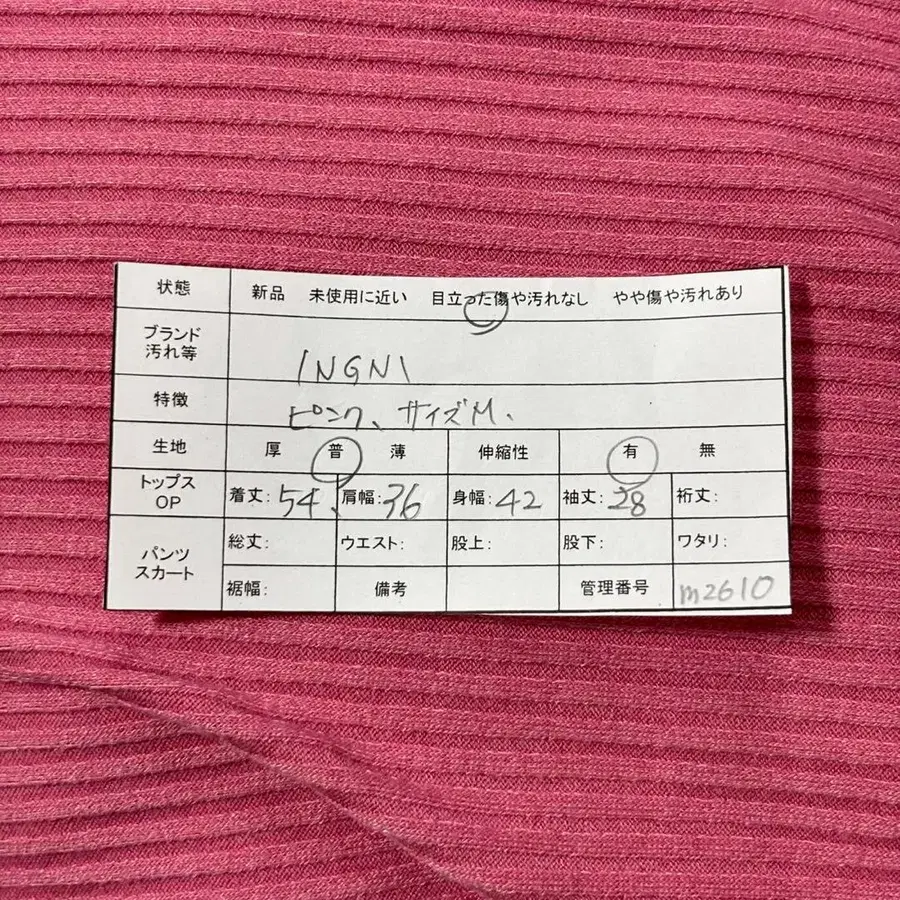 状態 新品 未使用に近い 目立った傷や汚れなし やや傷や汚れあり
ブランド
汚れ等
INGNI
特徴 ピンク、サイズM、
生地 厚 普 薄 伸縮性 有 無
トップス
OP
着丈:54、 肩幅:36 身幅:42 袖丈:28 裄丈:
パンツ
スカート
総丈: ウエスト: 股上: 股下: ワタリ:
裾幅: 備考 管理番号 m2610